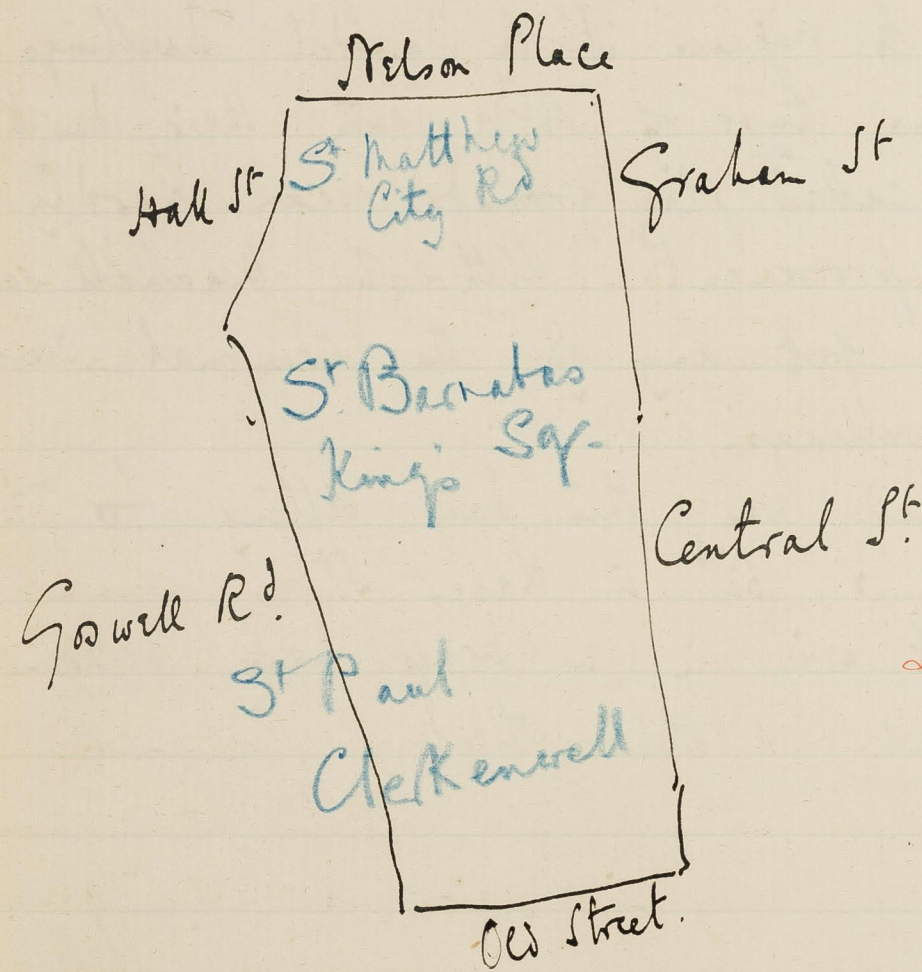 Nelson Place
Hall St
St Matthew
City Rd
Graham St
St. Barnabas
King's Sqr.
Central St.
Goswell Rd.
St Paul
Clerkenwell
Old Street.